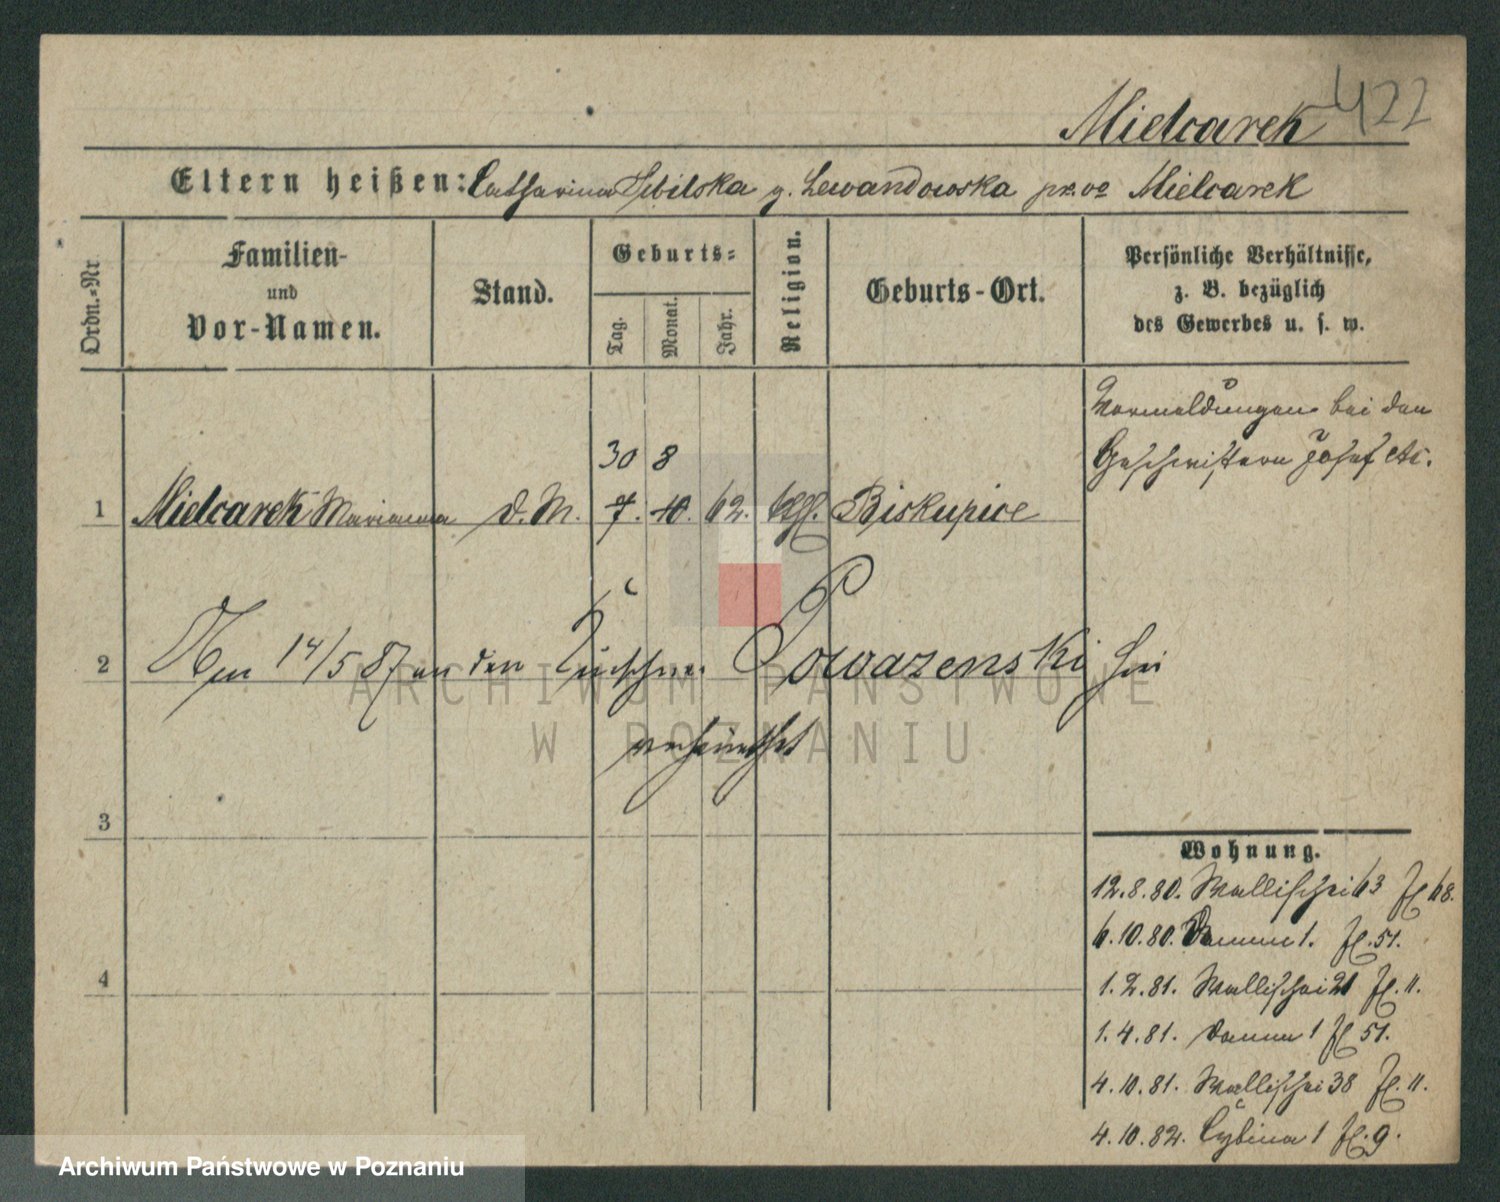 422
Mielcarek
Eltern heißen: Catharina Sibilska g. Lewandowska pr. vo Mielcarek
Ordn.-Nr.
Familien-
und
Vor-Namen.
Stand.
Geburts-
Tag.
Monat.
Jahr.
Religion.
Geburts-Ort.
Persönliche Verhältnisse,
z. B. bezüglich
des Gewerbes u. s. w.
Vermeldungen bei den
Geschwistern Josef etc.
30 8
1 Mielcarek Marianna d. M. 7. 10. 62. kth. Biskupice
2 Am 14/5 87 an den Kutscher Powazenski hier
verheirathet
3
4
Wohnung.
12.8.80. Wallischei 63 68.
6.10.80. Damm 1. 51.
1.2.81. Wallischei 21 11.
1.4.81. Damm 1 51.
4.10.81. Wallischei 38 11.
4.10.82. Cybina 1 9.
ARCHIWUM PAŃSTWOWE
W POZNANIU
Archiwum Państwowe w Poznaniu